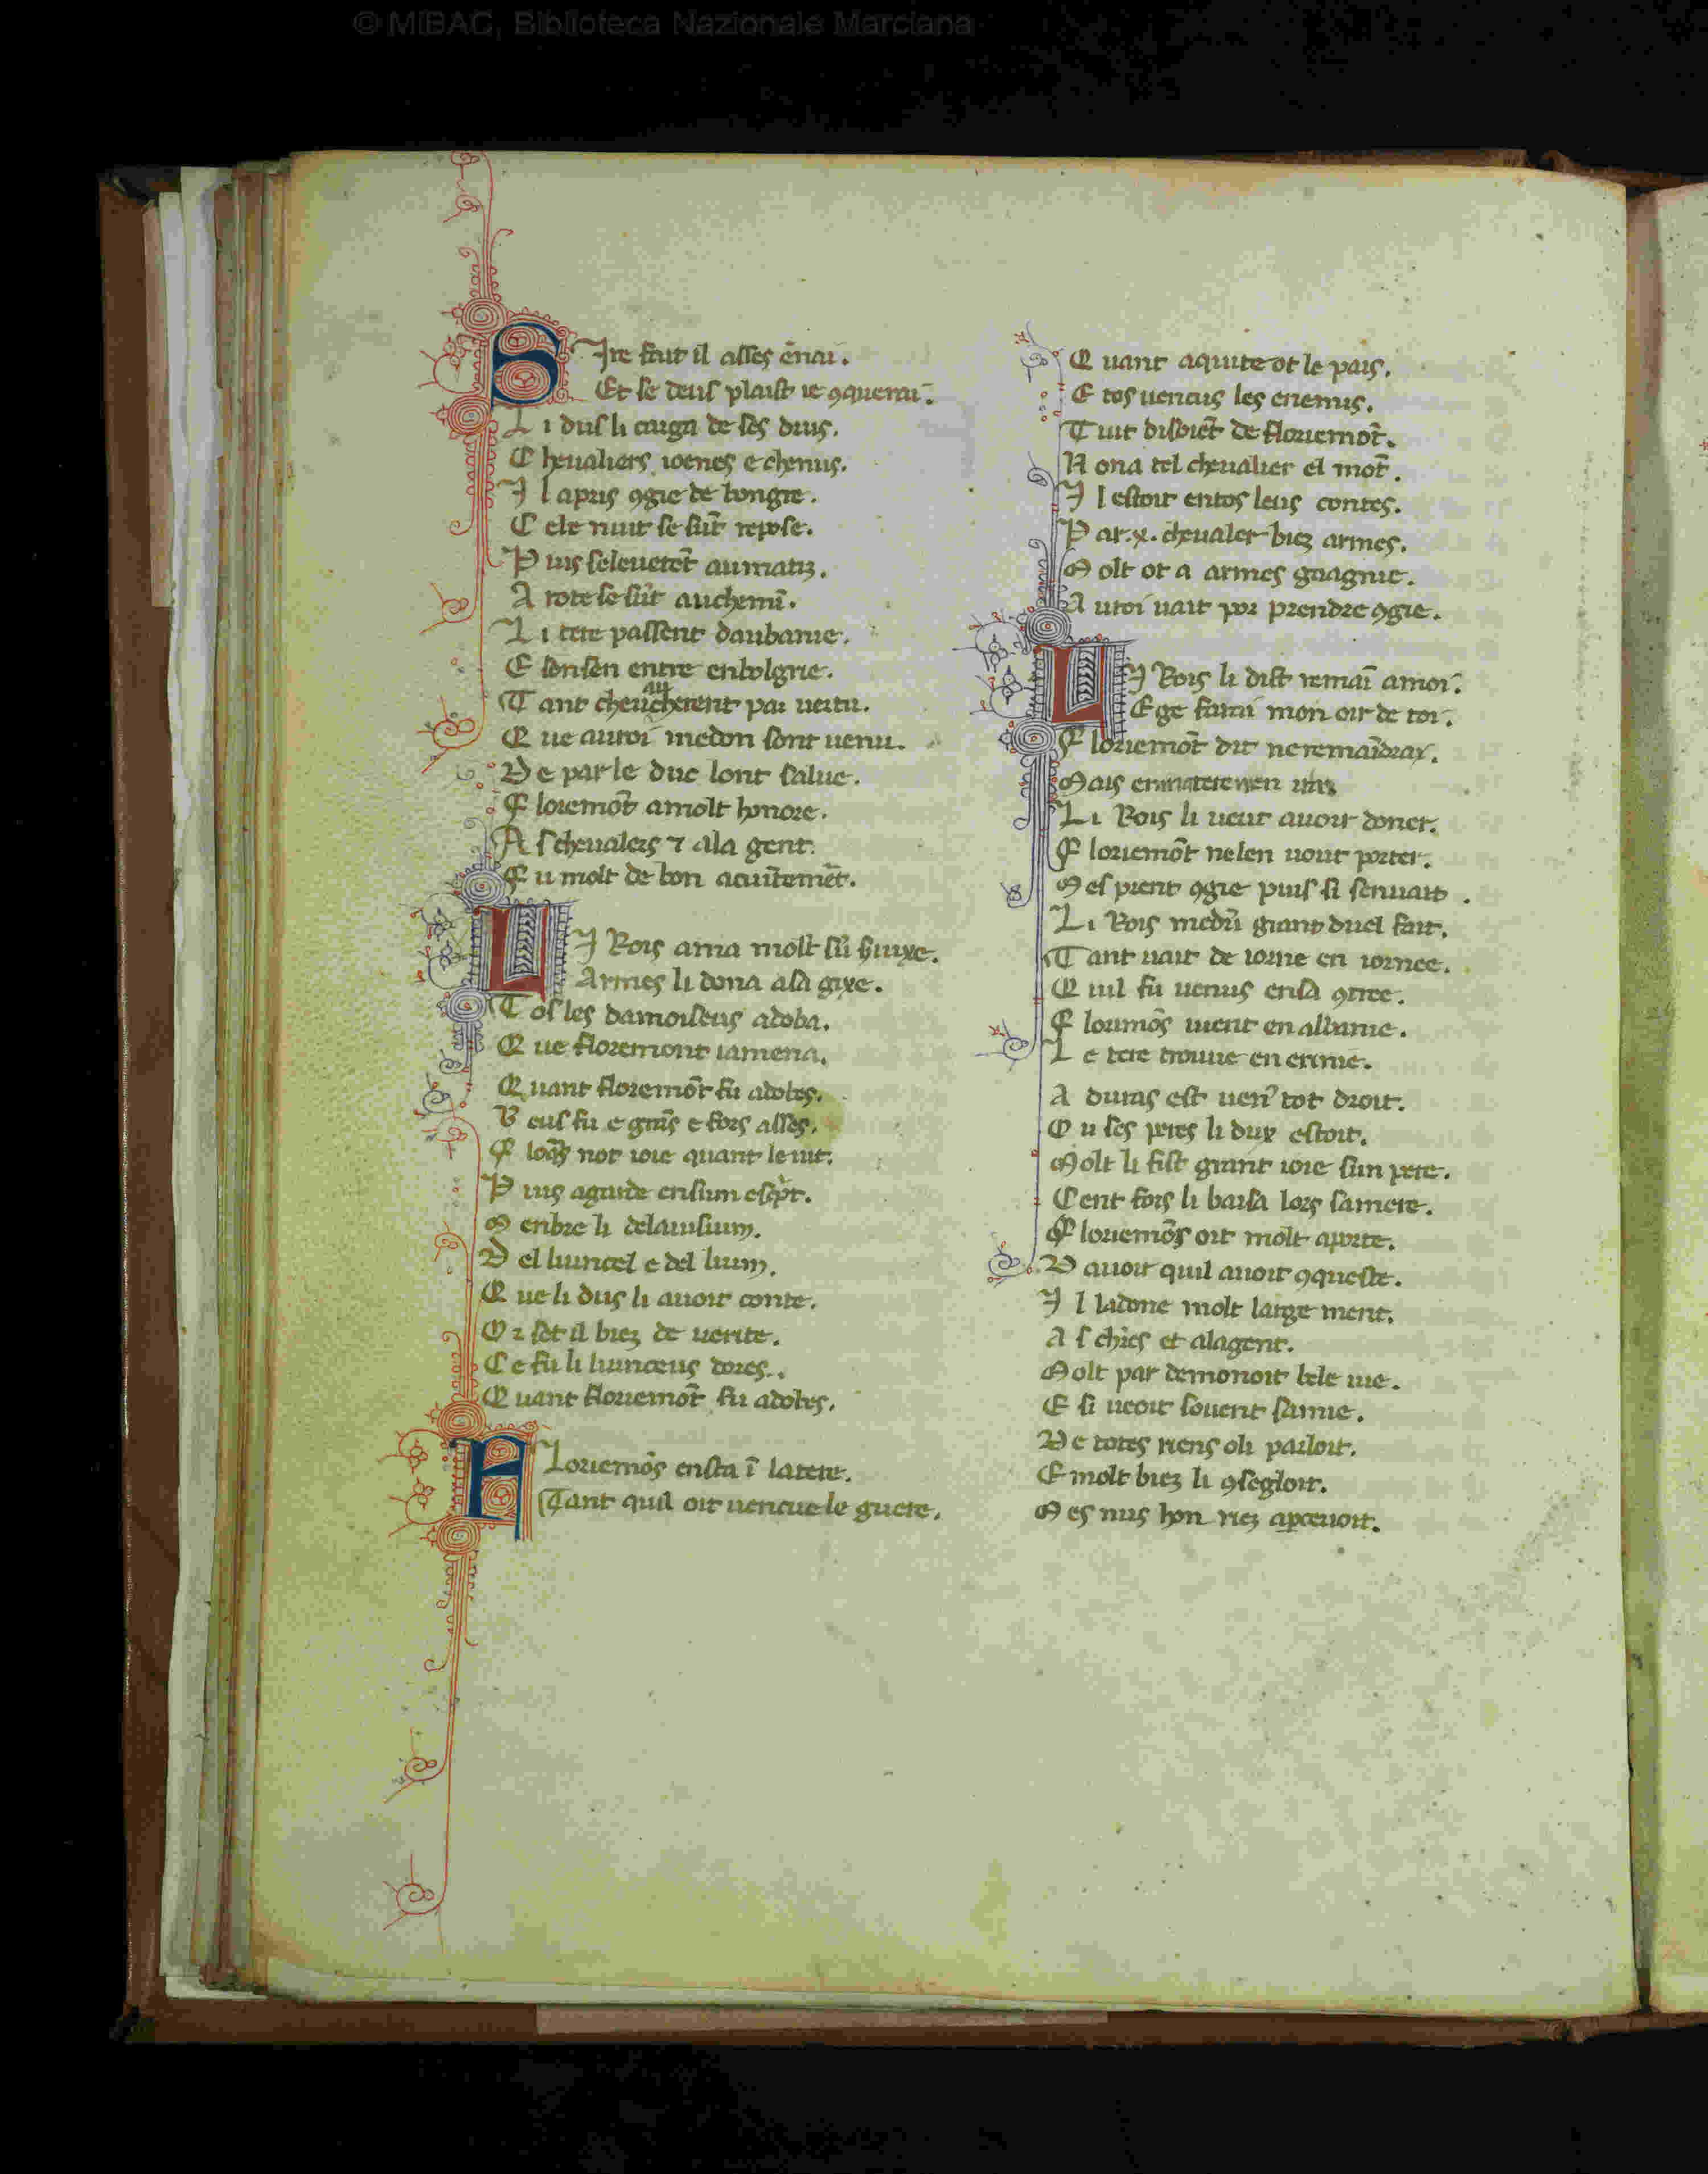 © MiBAC, Biblioteca Nazionale Marciana
SIre fait il asses ē nai.
Et se deus plaist ie ꝯquerai.
Li dus li carga de ses drus.
Cheualiers ioenes e chenus.
Il a pris ꝯgie de bongre.
Cele nuit se sūt repose.
Puis se leuerēt au matiz.
A rote se sūt au chemī.
Li tere passent daubanie.
E sonsen entre en bolgrie.
Tant cheuaucherent par uertu.
Que au roi medon sont uenu.
De par le duc lont salue.
Floremōt a molt honore.
As cheualers ⁊ a la gent.
Fu molt de bon acuītemēt.
LI Rois ama molt sū
Armes li dona a sa gixe.
Tos les damoiseus adoba.
Que floremont i amena.
Quant floremōt fu adobes.
Beus fu e grās e fors asses.
not ioie quant le uit.
Puis agarde en sum
Menbre li del auisium.
Del liuncel e del lium.
Que li dus li auoit conte.
Or set il biez de uerite.
Ce fu li liunceus dores.
Quant floriemōt fu adobes.
FLoriemōs ensta ī la tere.
Tant quil oit uencue le guere.
Quant aquite ot le pais.
E tos uencus les enemis.
Tuit disoiēt de floriemōt.
Non a tel cheualier el mōt.
Il estoit en tos leus contes.
Par .x. cheualer biez armes.
Molt ot a armes gaagnie.
Au roi uait por prendre ꝯgie.
LI Rois li dist remaī a moi.
E ge farai mon oir de toi.
Floriemōt dit ne remaīdray.
Mais en ma tere
Li Rois li ueut auoir doner.
Floriemōt nelen uout porter.
Mes prent ꝯgie puis si senuait.
Li Rois medū grant duel fait.
Tant uait de iorne en iornee.
Quil fu uenus en sa ꝯtree.
Florimōs uient en albanie.
Le tere trouue en ermie.
A duras est uen᷒ tot droit.
Ou ses peres li dux estoit.
Molt li fist grant ioie sun pere.
Cent fois li baisa lors sa mere.
Floriemōs oit molt aporte.
Dauoir quil auoit ꝯqueste.
Il la done molt large ment.
As chīes et a la gent.
Molt par demonoit bele uie.
E si ueoit souent samie.
De totes riens oli parloit.
E molt biez li ꝯsegloit.
Mes nus hon riez aperceuoit.